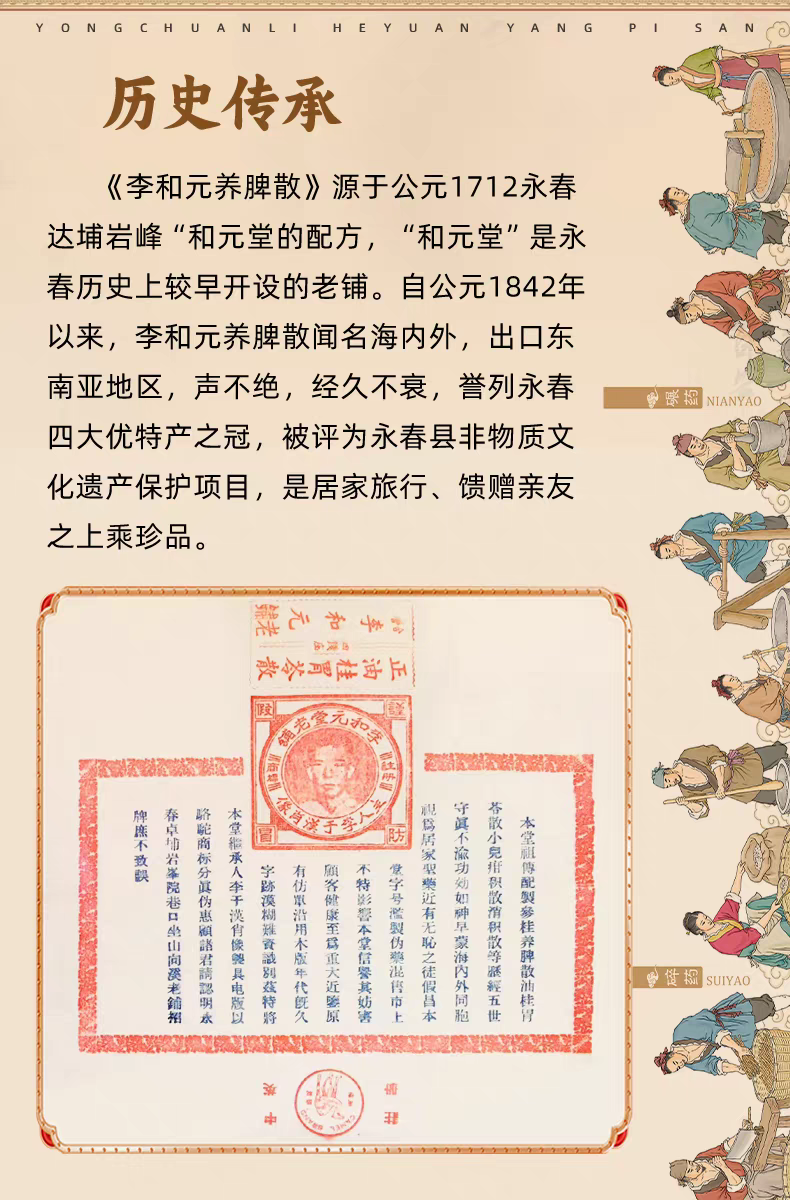 YONGCHUANLI HEYUAN YANG PI SAN
历史传承
《李和元养脾散》源于公元1712永春
达埔岩峰“和元堂的配方，“和元堂”是永
春历史上较早开设的老铺。自公元1842年
以来，李和元养脾散闻名海内外，出口东
南亚地区，声不绝，经久不衰，誉列永春
四大优特产之冠，被评为永春县非物质文
化遗产保护项目，是居家旅行、馈赠亲友
之上乘珍品。
碾药 NIANYAO
碎药 SUIYAO
李和元
正油桂胃苓散
李和元堂老鋪
假
防
冒
本堂祖傳配製參桂养脾散油桂胃
苓散小兒疳积散消积散等歷經五世
守眞不渝功効如神早蒙海内外同胞
視爲居家聖藥近有无恥之徒假昌本
堂字号濫製伪藥混售市上
不特影響本堂信譽其妨害
顧客健康至爲重大近鑒原
有仿單沿用木版年代旣久
字跡漠糊難資識別茲特將
本堂繼承人李于漢肖像製具电版以
駱駝商标分眞伪惠顧諸君請認明永
春卓埔岩峯院巷口坐山向溪老鋪招
牌庶不致誤
CAMEL BRAND